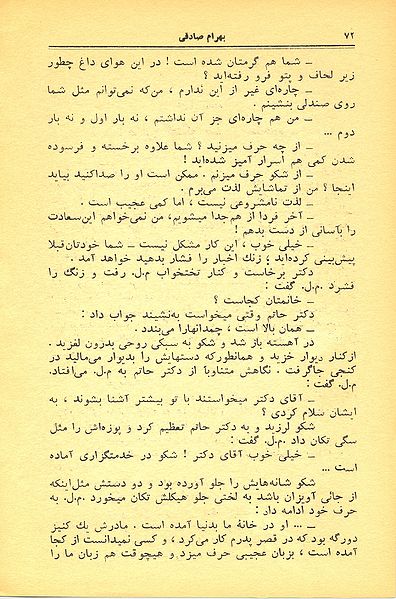 ۷۲ بهرام صادقی
ــ شما هم گرمتان شده است ! در این هوای داغ چطور
زیر لحاف و پتو فرو رفته‌اید ؟
ــ چاره‌ای غیر از این ندارم ، من‌که نمی‌توانم مثل شما
روی صندلی بنشینم .
ــ من هم چاره‌ای جز آن نداشتم ، نه بار اول و نه بار
دوم ...
ــ از چه حرف میزنید ؟ شما علاوه برخسته و فرسوده
شدن کمی هم اسرار آمیز شده‌اید !
ــ از شکو حرف میزنم . ممکن است او را صداکنید بیاید
اینجا ؟ من از تماشایش لذت می‌برم .
ــ لذت نامشروعی نیست ، اما کمی عجیب است .
ــ آخر فردا از هم‌جدا میشویم، من نمی‌خواهم این‌سعادت
را بآسانی از دست بدهم !
ــ خیلی خوب ، این کار مشکل نیست ــ شما خودتان‌قبلا
پیش‌بینی کرده‌اید ؛ زنك اخبار را فشار بدهید خواهد آمد .
دکتر برخاست و کنار تختخواب م.ل. رفت و زنگ را
فشرد .م.ل. گفت :
ــ خانمتان کجاست ؟
دکتر حاتم وقتی میخواست به‌نشیند جواب داد:
ــ همان بالا است ، چمدانهارا می‌بندد .
در آهسته باز شد و شکو به سبکی روحی بدرون لغزید .
ازکنار دیوار خزید و همانطورکه دستهایش را بدیوار می‌مالید در
کنجی جاگرفت . نگاهش متناوباً از دکتر حاتم به م.ل. می‌افتاد.
م.ل. گفت :
ــ آقای دکتر میخواستند با تو بیشتر آشنا بشوند ، به
ایشان سلام کردی ؟
شکو لرزید و به دکتر حاتم تعظیم کرد و پوزه‌اش را مثل
سگی تکان داد .م.ل. گفت :
ــ خیلی خوب آقای دکتر ! شکو در خدمتگزاری آماده
است ...
شکو شانه‌هایش را جلو آورده بود و دو دستش مثل‌اینکه
از جائی آویزان باشد به لختی جلو هیکلش تکان میخورد .م.ل. به
حرف خود ادامه داد :
ــ ... او در خانهٔ ما بدنیا آمده است . مادرش یك کنیز
دورگه بود که در قصر پدرم کار می‌کرد ، و کسی نمیدانست از کجا
آمده است ، بزبان عجیبی حرف میزد و هیچوقت هم زبان ما را